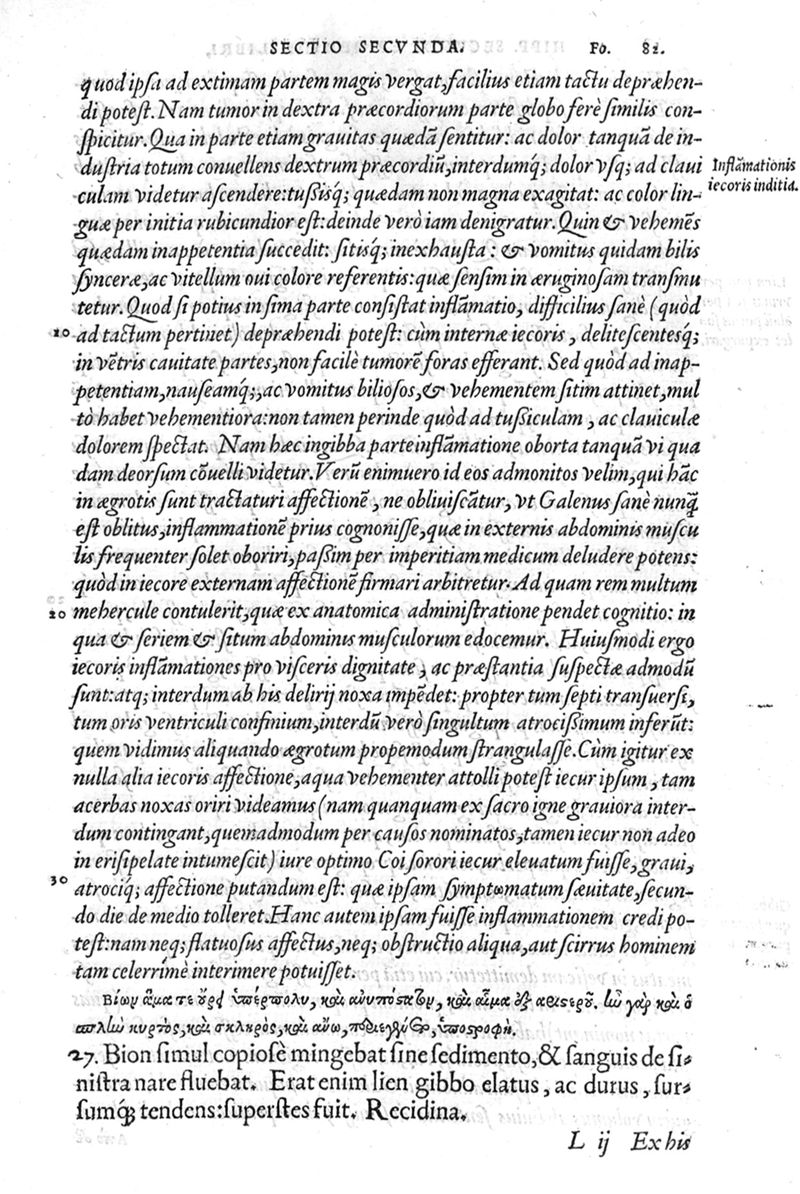 SECTIO SECVNDA. Fo. 82.
quod ipsa ad extimam partem magis vergat, facilius etiam tactu depræhen-
di potest. Nam tumor in dextra præcordiorum parte globo ferè similis con-
spicitur. Qua in parte etiam grauitas quædā sentitur: ac dolor tanquā de in-
dustria totum conuellens dextrum præcordiū, interdumq́; dolor vsq; ad claui
Inflāmationis
iecoris inditia.
culam videtur ascendere: tussisq́; quædam non magna exagitat: ac color lin-
guæ per initia rubicundior est: deinde verò iam denigratur. Quin & vehemēs
quædam inappetentia succedit: sitisq́; inexhausta: & vomitus quidam bilis
synceræ, ac vitellum oui colore referentis: quæ sensim in æruginosam transmu
tetur. Quod si potius in sima parte consistat inflāmatio, difficilius sanè (quòd
10 ad tactum pertinet) depræhendi potest: cùm internæ iecoris, delitescentesq́;
in vētris cauitate partes, non facilè tumorē foras efferant. Sed quòd ad inap-
petentiam, nauseamq́;, ac vomitus biliosos, & vehementem sitim attinet, mul
tò habet vehementiora: non tamen perinde quòd ad tussiculam, ac clauiculæ
dolorem spectat. Nam hæc in gibba parte inflāmatione oborta tanquā vi qua
dam deorsum cōuelli videtur. Verū enimuero id eos admonitos velim, qui hāc
in ægrotis sunt tractaturi affectionē, ne obliuiscātur, vt Galenus sanè nunq̄
est oblitus, inflammationē prius cognonisse, quæ in externis abdominis muscu
lis frequenter solet oboriri, passim per imperitiam medicum deludere potens:
quòd in iecore externam affectionē firmari arbitretur. Ad quam rem multum
20 mehercule contulerit, quæ ex anatomica administratione pendet cognitio: in
qua & seriem & situm abdominis musculorum edocemur. Huiusmodi ergo
iecoris inflāmationes pro visceris dignitate, ac præstantia suspectæ admodū
sunt: atq; interdum ab his delirij noxa impēdet: propter tum septi transuersi,
tum oris ventriculi confinium, interdū verò singultum atrocissimum inferūt:
quem vidimus aliquando ægrotum propemodum strangulasse. Cùm igitur ex
nulla alia iecoris affectione, aqua vehementer attolli potest iecur ipsum, tam
acerbas noxas oriri videamus (nam quanquam ex sacro igne grauiora inter-
dum contingant, quemadmodum per causos nominatos, tamen iecur non adeo
in erisipelate intumescit) iure optimo Coi sorori iecur eleuatum fuisse, graui,
30 atrociq́; affectione putandum est: quæ ipsam symptomatum sæuitate, secun-
do die de medio tolleret. Hanc autem ipsam fuisse inflammationem credi po-
test: nam neq; flatuosus affectus, neq; obstructio aliqua, aut scirrus hominem
tam celerrimè interimere potuisset.
Βίων ἅμα τε οὔρει ὑπέρπολυ, καὶ ἀνυπόστατον, καὶ αἷμα ἐξ ἀριστεροῦ. ἦν γὰρ καὶ ὁ
σπλὴν κυρτὸς, καὶ σκληρὸς, καὶ ἄνω, περιεγένετο, ὑποστροφή.
27. Bion simul copiosè mingebat sine sedimento, & sanguis de si-
nistra nare fluebat. Erat enim lien gibbo elatus, ac durus, sur-
sumq́; tendens: superstes fuit. Recidina.
L ij Ex his